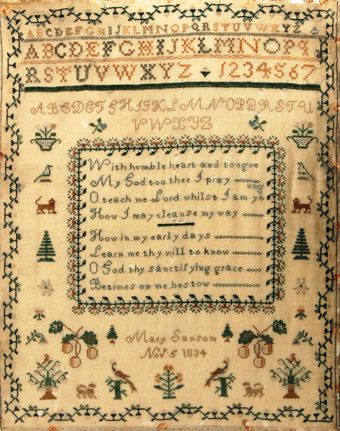 ABCDEFGHIJKLMNOPQRSTUVWXYZ
ABCDEFGHIJKLMNOPQ
RSTUVWXYZ 1234567
ABCDEFGHIJKLMNOPQRSTU
VWXYZ
With humble heart and tongue
My God too thee I pray
O teach me Lord whilst I am yo
ung
How I may cleanse my way
How in my early days
Learn me thy will to know
O God thy sanctifying grace
Betimes on me bestow
Mary Sanson
Nov 5 1834